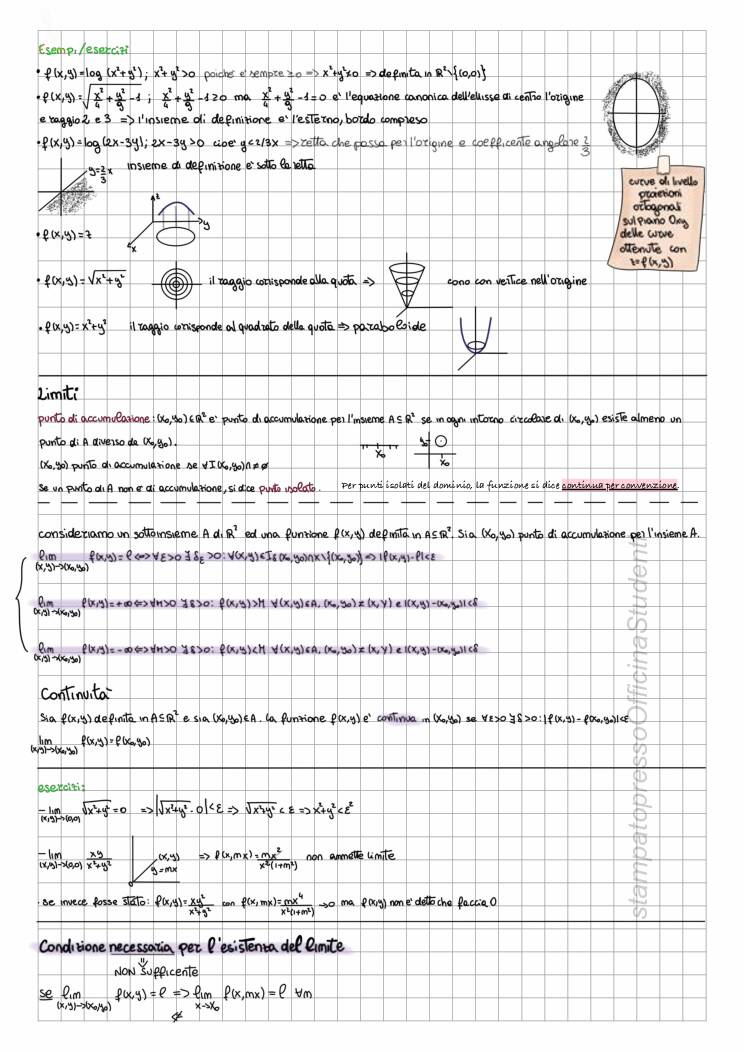 Esempi/esercizi
• f(x,y)=log (x²+y²); x²+y²>0 poiché e' sempre ≥0 => x²+y²≠0 => definita in ℝ²\{(0,0)}
• f(x,y)=√(x²/4+y²/9-1) ; x²/4+y²/9-1≥0 ma x²/4+y²/9-1=0 e' l'equazione canonica dell'ellisse di centro l'origine
e raggio 2 e 3 => l'insieme di definizione e' l'esterno, bordo compreso
• f(x,y)=log(2x-3y); 2x-3y>0 cioe' y<2/3x => retta che passa per l'origine e coefficente angolare 2/3
y=2/3 x
insieme di definizione e' sotto la retta
curve di livello
proiezioni
ortogonali
sul piano Oxy
delle curve
ottenute con
z=f(x,y)
z
y
x
• f(x,y)=z
• f(x,y)=√x²+y² il raggio corrisponde alla quota => cono con vertice nell'origine
• f(x,y)=x²+y² il raggio corrisponde al quadrato della quota => paraboloide
Limiti
punto di accumulazione: (x₀,y₀)∈ℝ² e' punto di accumulazione per l'insieme A⊆ℝ² se in ogni intorno circolare di (x₀,y₀) esiste almeno un
punto di A diverso da (x₀,y₀).
x₀
y₀
x₀
(x₀,y₀) punto di accumulazione se ∀I(x₀,y₀)∩≠∅
Se un punto di A non e' di accumulazione, si dice punto isolato. Per punti isolati del dominio, la funzione si dice continua per convenzione.
consideriamo un sottoinsieme A di ℝ² ed una funzione f(x,y) definita in A⊆ℝ². Sia (x₀,y₀) punto di accumulazione per l'insieme A.
lim (x,y)->(x₀,y₀) f(x,y)=ℓ <=> ∀ε>0 ∃δε>0: ∀(x,y)∈Iδ(x₀,y₀)∩x\{(x₀,y₀)} => |f(x,y)-ℓ|<ε
lim (x,y)->(x₀,y₀) f(x,y)=+∞ <=> ∀M>0 ∃δ>0: f(x,y)>M ∀(x,y)∈A, (x₀,y₀)≠(x,y) e |(x,y)-(x₀,y₀)|<δ
lim (x,y)->(x₀,y₀) f(x,y)=-∞ <=> ∀M>0 ∃δ>0: f(x,y)<M ∀(x,y)∈A, (x₀,y₀)≠(x,y) e |(x,y)-(x₀,y₀)|<δ
Continuita'
Sia f(x,y) definita in A⊆ℝ² e sia (x₀,y₀)∈A. La funzione f(x,y) e' continua in (x₀,y₀) se ∀ε>0 ∃δ>0: |f(x,y)-f(x₀,y₀)|<ε
lim (x,y)->(x₀,y₀) f(x,y)=f(x₀,y₀)
esercizi:
- lim (x,y)->(0,0) √x²+y²=0 => |√x²+y²-0|<ε => √x²+y²<ε => x²+y²<ε²
- lim (x,y)->(0,0) xy/x²+y² (x,y) y=mx => f(x,mx)=mx²/x²(1+m²) non ammette limite
• se invece fosse stato: f(x,y)=xy²/x²+y² con f(x,mx)=mx⁴/x²(1+m²) ->0 ma f(x,y) non e' detto che faccia 0
Condizione necessaria per l'esistenza del limite
NON Sufficente
se lim (x,y)->(x₀,y₀) f(x,y)=ℓ => lim x->x₀ f(x,mx)=ℓ ∀m
stampatopressoOfficinaStudenti